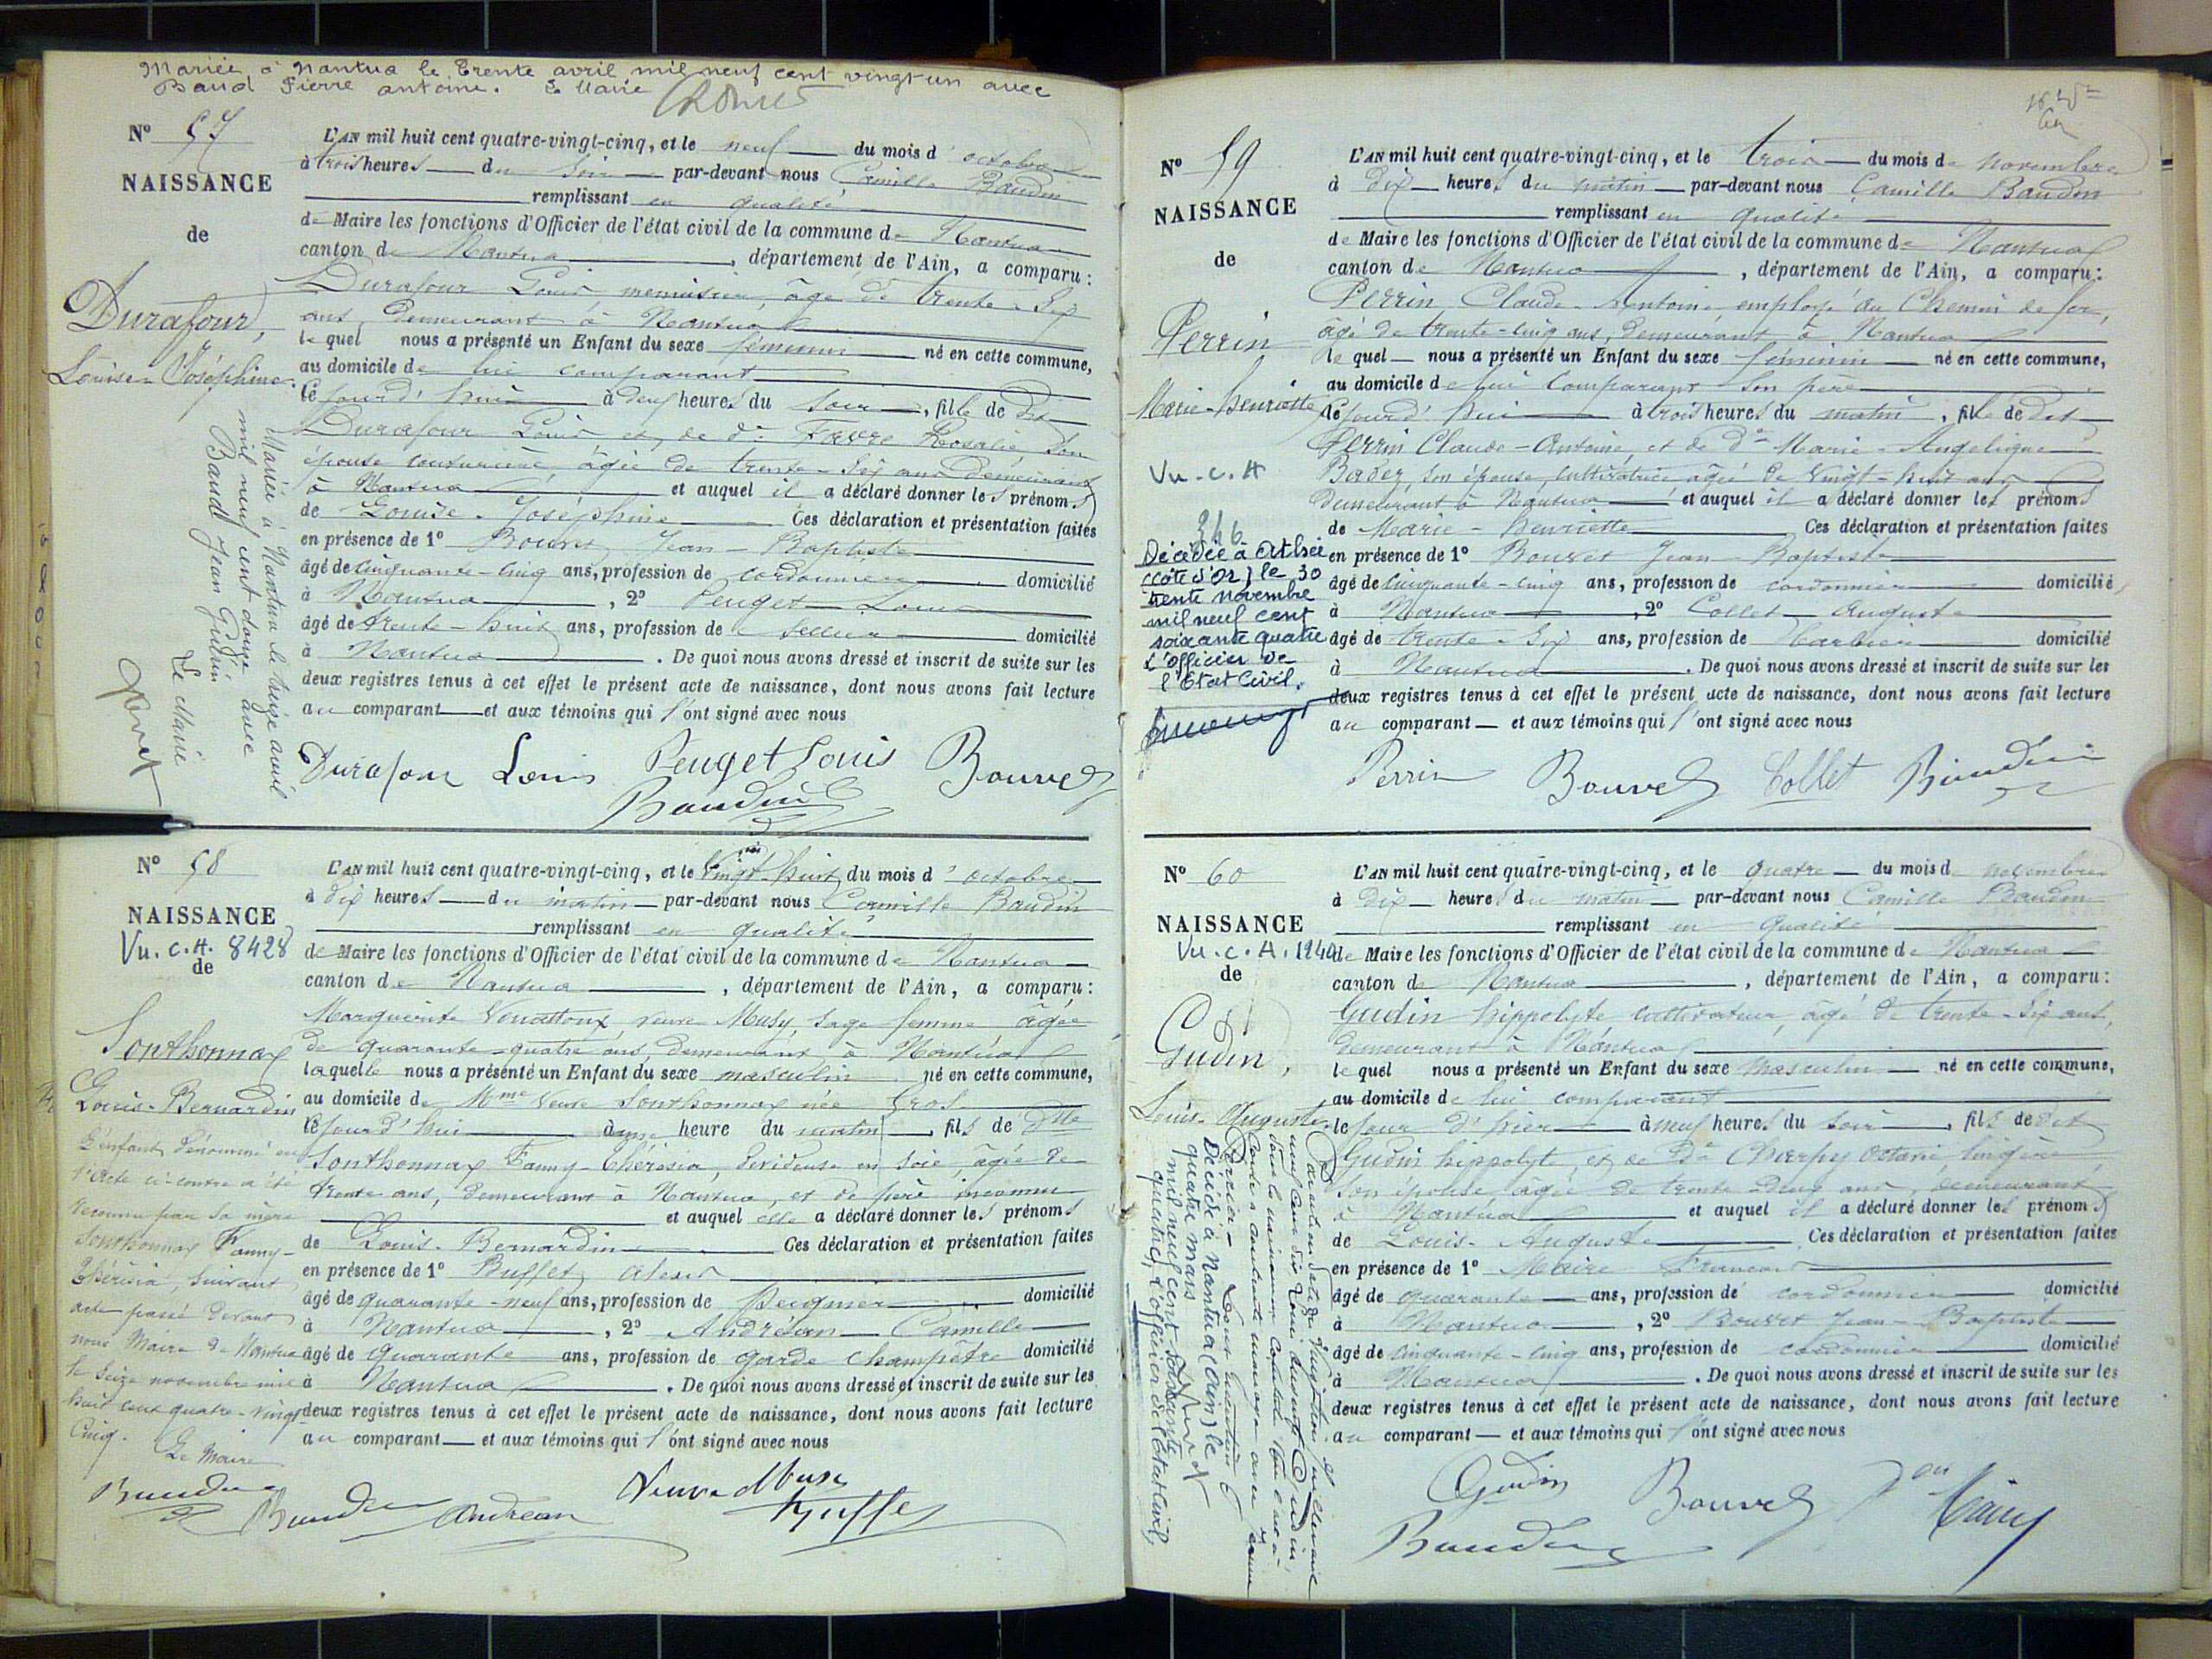 Mariée à Nantua le trente avril mil neuf cent vingt-un avec
Baud Pierre antoine. Le Maire
N° 57
NAISSANCE
de
Durafour,
Louise-Joséphine.
Mariée à Nantua le treize avril
mil neuf cent douze avec
Baudt Jean
Le Maire
L'AN mil huit cent quatre-vingt-cinq, et le neuf du mois d'octobre
à trois heures du soir par-devant nous Camille Baudin
remplissant en qualité
de Maire les fonctions d'Officier de l'état civil de la commune de Nantua
canton de Nantua, département de l'Ain, a comparu :
Durafour Louis menuisier, âgé de trente-six
ans, demeurant à Nantua
lequel nous a présenté un Enfant du sexe féminin né en cette commune,
au domicile de lui comparant
cejourd'hui à deux heures du soir, fille de dit
Durafour Louis et de de Favre Rosalie, son
épouse couturière, âgée de trente-six ans demeurant
à Nantua et auquel il a déclaré donner les prénoms
de Louise-Joséphine Ces déclaration et présentation faites
en présence de 1° Bouvet Jean-Baptiste
âgé de cinquante-cinq ans, profession de cordonnier domicilié
à Nantua, 2° Peuget Louis
âgé de trente-huit ans, profession de sellier domicilié
à Nantua. De quoi nous avons dressé et inscrit de suite sur les
deux registres tenus à cet effet le présent acte de naissance, dont nous avons fait lecture
au comparant et aux témoins qui l'ont signé avec nous
Durafour Louis Peuget Louis Bouvet
Baudin
N° 58
NAISSANCE
Vu. C. H. 8428
de
Sonthonnax
Louis-Bernardin
L'enfant dénommé en
l'acte ci-contre a été
reconnu par sa mère
Sonthonnax Fanny-
Thérésia, suivant
acte passé devant
nous Maire de Nantua
le seize novembre mil
huit cent quatre-vingt
cinq.
Le Maire
Baudin
L'AN mil huit cent quatre-vingt-cinq, et le vingt-huit du mois d'octobre
à dix heures du matin par-devant nous Camille Baudin
remplissant en qualité
de Maire les fonctions d'Officier de l'état civil de la commune de Nantua
canton de Nantua, département de l'Ain, a comparu :
Marguerite veuve Musy, sage femme âgée
de quarante-quatre ans, demeurant à Nantua
laquelle nous a présenté un Enfant du sexe masculin né en cette commune,
au domicile de Mme Veuve Sonthonnax née Gros
cejourd'hui à une heure du matin, fils de Dlle
Sonthonnax Fanny-Thérésia, dévideuse en soie, âgée de
trente ans, demeurant à Nantua, et de père inconnu
et auquel elle a déclaré donner les prénoms
de Louis-Bernardin Ces déclaration et présentation faites
en présence de 1° Buffet Alexis
âgé de quarante-neuf ans, profession de peigneur domicilié
à Nantua, 2° Andréan Camille
âgé de quarante ans, profession de garde champêtre domicilié
à Nantua. De quoi nous avons dressé et inscrit de suite sur les
deux registres tenus à cet effet le présent acte de naissance, dont nous avons fait lecture
au comparant et aux témoins qui l'ont signé avec nous
Baudin Andréan Veuve Musy Buffet
N° 59
NAISSANCE
de
Perrin
Marie-Henriette
Vu. C. H
346
Décédée à Athée
(Côte d'Or) le 30
trente novembre
mil neuf cent
soixante quatre
L'officier de
l'Etat Civil.
L'AN mil huit cent quatre-vingt-cinq, et le trois du mois de novembre
à dix heures du matin par-devant nous Camille Baudin
remplissant en qualité
de Maire les fonctions d'Officier de l'état civil de la commune de Nantua
canton de Nantua, département de l'Ain, a comparu :
Perrin, Claude-Antoine, employé au Chemin de fer,
âgé de trente-cinq ans, demeurant à Nantua
lequel nous a présenté un Enfant du sexe féminin né en cette commune,
au domicile de lui comparant son père
cejourd'hui à trois heures du matin, fille de dit
Perrin Claude-Antoine, et de de Marie-Angélique
Badez, son épouse, cultivatrice âgée de vingt-huit ans
demeurant à Nantua et auquel il a déclaré donner les prénoms
de Marie-Henriette Ces déclaration et présentation faites
en présence de 1° Bouvet Jean-Baptiste
âgé de cinquante-cinq ans, profession de cordonnier domicilié
à Nantua, 2° Collet Auguste
âgé de trente-six ans, profession de barbier domicilié
à Nantua. De quoi nous avons dressé et inscrit de suite sur les
deux registres tenus à cet effet le présent acte de naissance, dont nous avons fait lecture
au comparant et aux témoins qui l'ont signé avec nous
Perrin Bouvet Collet Baudin
N° 60
NAISSANCE
Vu. C. H. 1240
de
Gudin,
Louis-Auguste.
Décédé à Nantua (Ain) le
quatre mars
mil neuf cent soixante
quatre, L'officier de l'Etat Civil,
L'AN mil huit cent quatre-vingt-cinq, et le quatre du mois de novembre
à dix heures du matin par-devant nous Camille Baudin
remplissant en qualité
de Maire les fonctions d'Officier de l'état civil de la commune de Nantua
canton de Nantua, département de l'Ain, a comparu :
Gudin hippolyte cultivateur, âgé de trente-six ans,
demeurant à Nantua
lequel nous a présenté un Enfant du sexe masculin né en cette commune,
au domicile de lui comparant
le jour d'hier à neuf heures du soir, fils de dit
Gudin hippolyte, et de de Charpy Octavie lingère
son épouse, âgée de trente-deux ans, demeurant
à Nantua et auquel il a déclaré donner les prénoms
de Louis-Auguste Ces déclaration et présentation faites
en présence de 1° Maire François
âgé de quarante ans, profession de cordonnier domicilié
à Nantua, 2° Bouvet Jean-Baptiste
âgé de cinquante-cinq ans, profession de cordonnier domicilié
à Nantua. De quoi nous avons dressé et inscrit de suite sur les
deux registres tenus à cet effet le présent acte de naissance, dont nous avons fait lecture
au comparant et aux témoins qui l'ont signé avec nous
Gudin Bouvet
Baudin